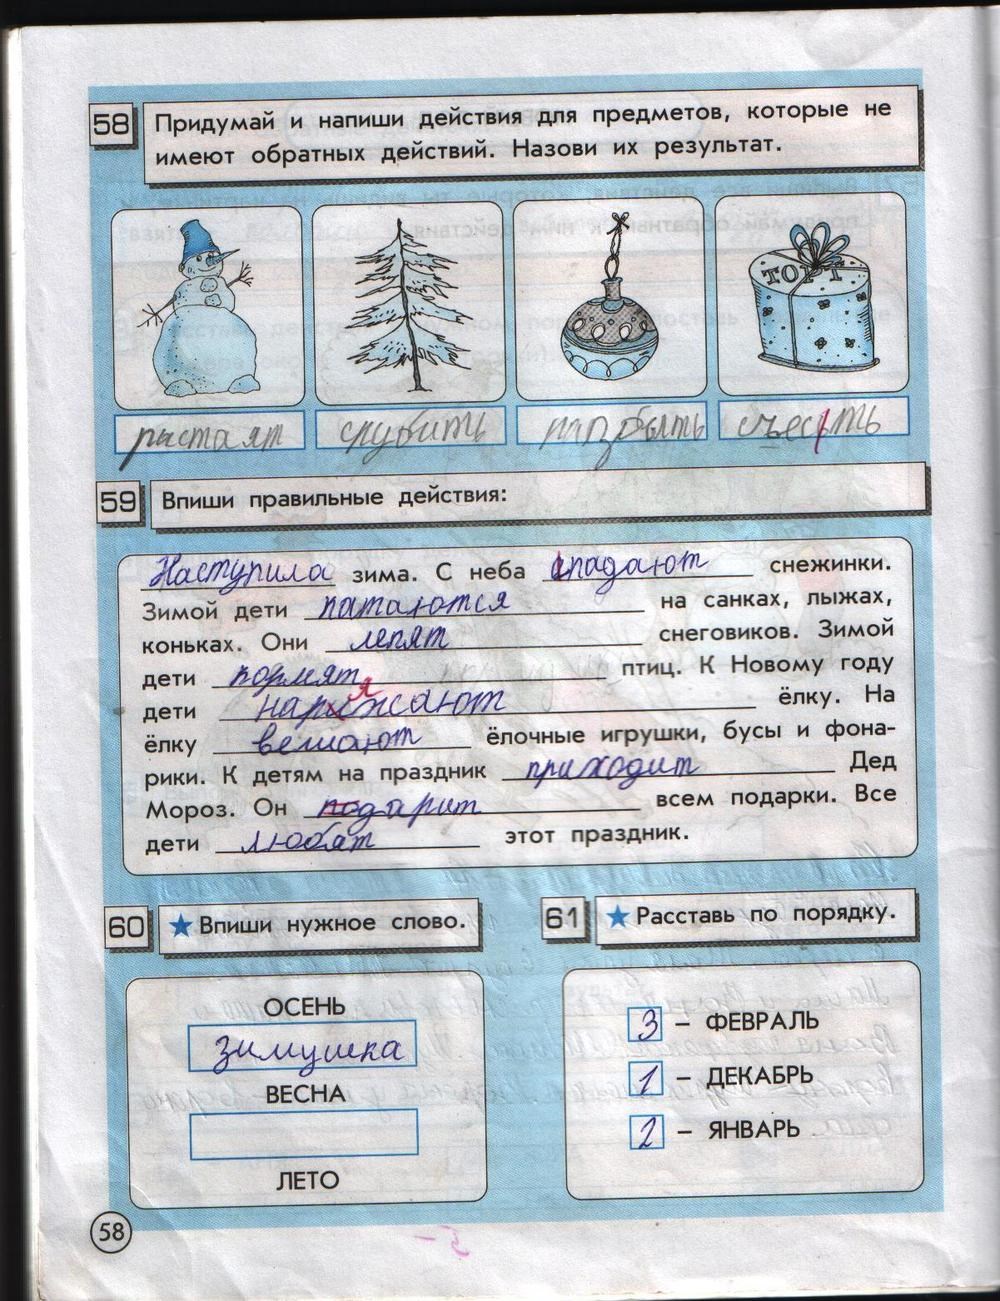 58 Придумай и напиши действия для предметов, которые не
имеют обратных действий. Назови их результат.
ТОРТ
растаят срубить разбыть съесть
59 Впиши правильные действия:
Наступила зима. С неба падают снежинки.
Зимой дети катаются на санках, лыжах,
коньках. Они лепят снеговиков. Зимой
дети кормят птиц. К Новому году
дети наряжают ёлку. На
ёлку вешают ёлочные игрушки, бусы и фона-
рики. К детям на праздник приходит Дед
Мороз. Он подарит всем подарки. Все
дети любят этот праздник.
60 Впиши нужное слово. 61 Расставь по порядку.
ОСЕНЬ
зимушка
ВЕСНА
ЛЕТО
3 – ФЕВРАЛЬ
1 – ДЕКАБРЬ
2 – ЯНВАРЬ
58